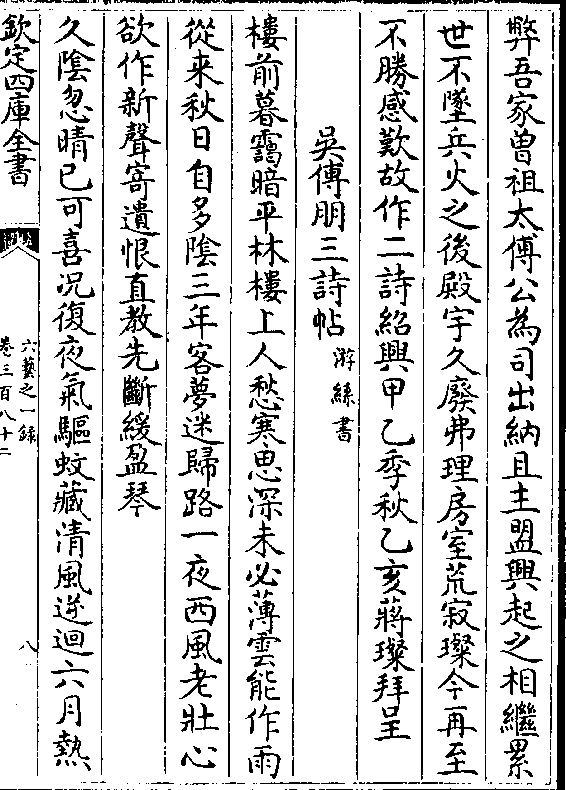 弊吾家曾祖太傅公為司出納且主盟興起之相繼累
世不墜兵火之後殿宇久廢弗理房室荒寂璨今再至
不勝感歎故作二詩紹興甲乙季秋乙亥蔣璨拜呈
吳傅朋三詩帖 游絲書
樓前暮靄暗平林樓上人愁寒思深未必薄雲能作雨
從来秋日自多陰三年客夢迷歸路一夜西風老壯心
欲作新聲寄遺恨直教先斷緩盈琴
久陰忽晴已可喜况復夜氣驅蚊藏清風遞迴六月熱
欽定四庫全書
六藝之一録
卷三百八十二
八